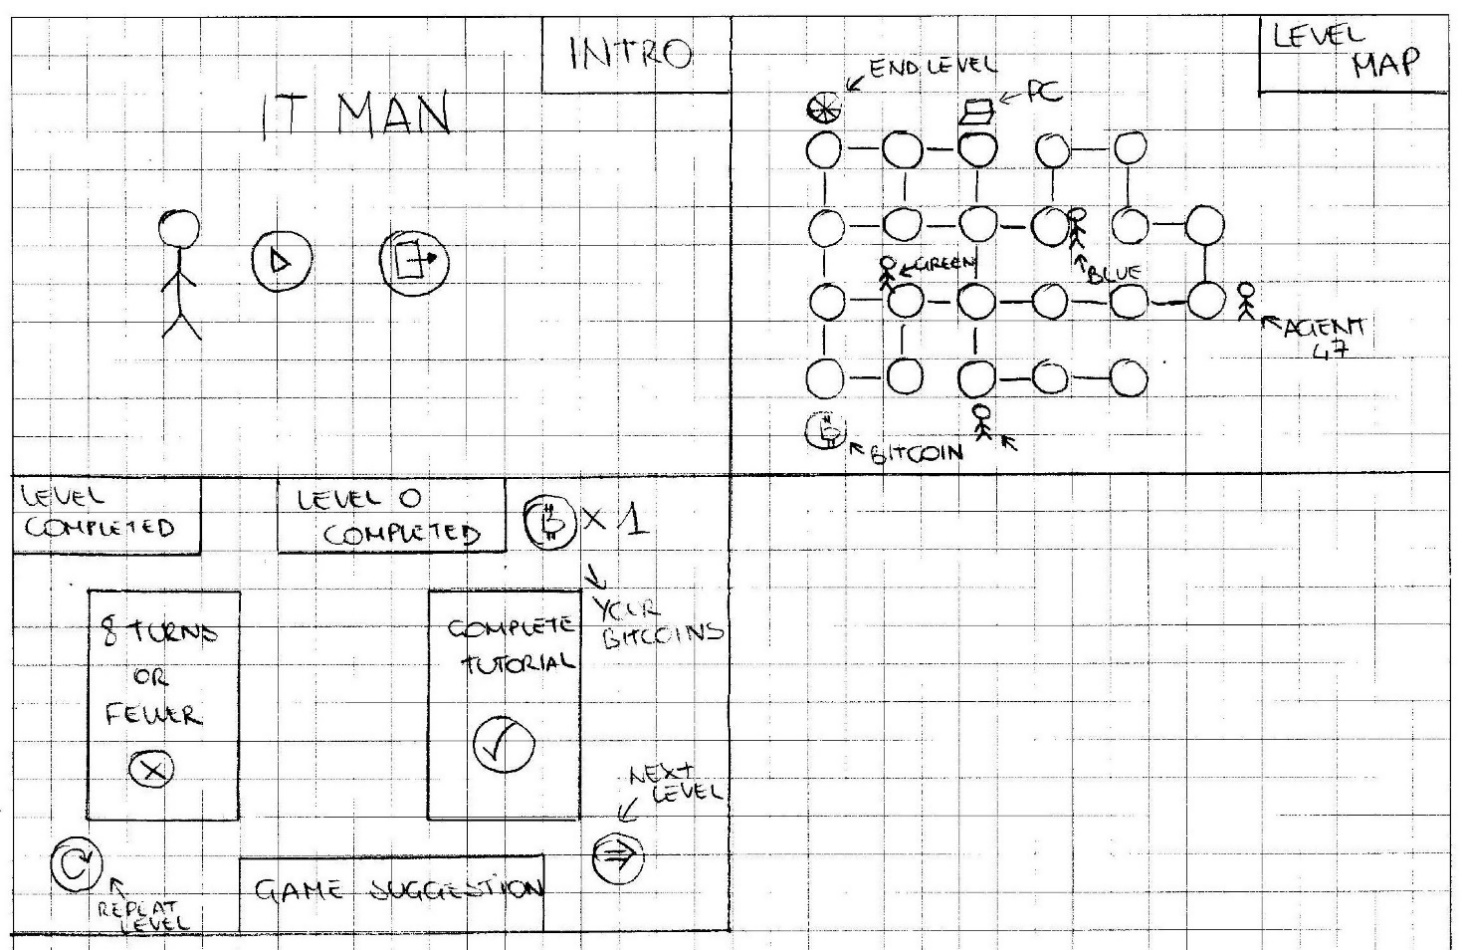 INTRO
IT MAN
LEVEL
MAP
END LEVEL
PC
GREEN
BLUE
AGENT
47
BITCOIN
LEVEL
COMPLETED
LEVEL 0
COMPLETED
B X 1
YOUR
BITCOINS
8 TURNS
OR
FEWER
COMPLETE
TUTORIAL
NEXT
LEVEL
REPEAT
LEVEL
GAME SUGGESTION
B